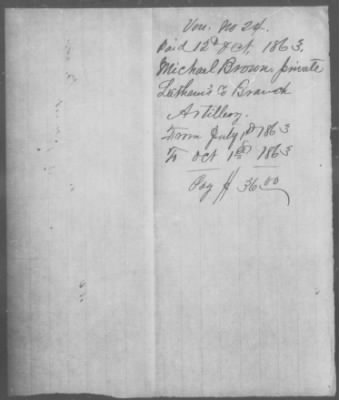 Vou. No 24.
Paid 12th Oct. 1863.
Michael Brown, private
Latham's Co Branch
Artillery.
From July 1st 1863
To Oct 1st 1863
Pay $ 36.00